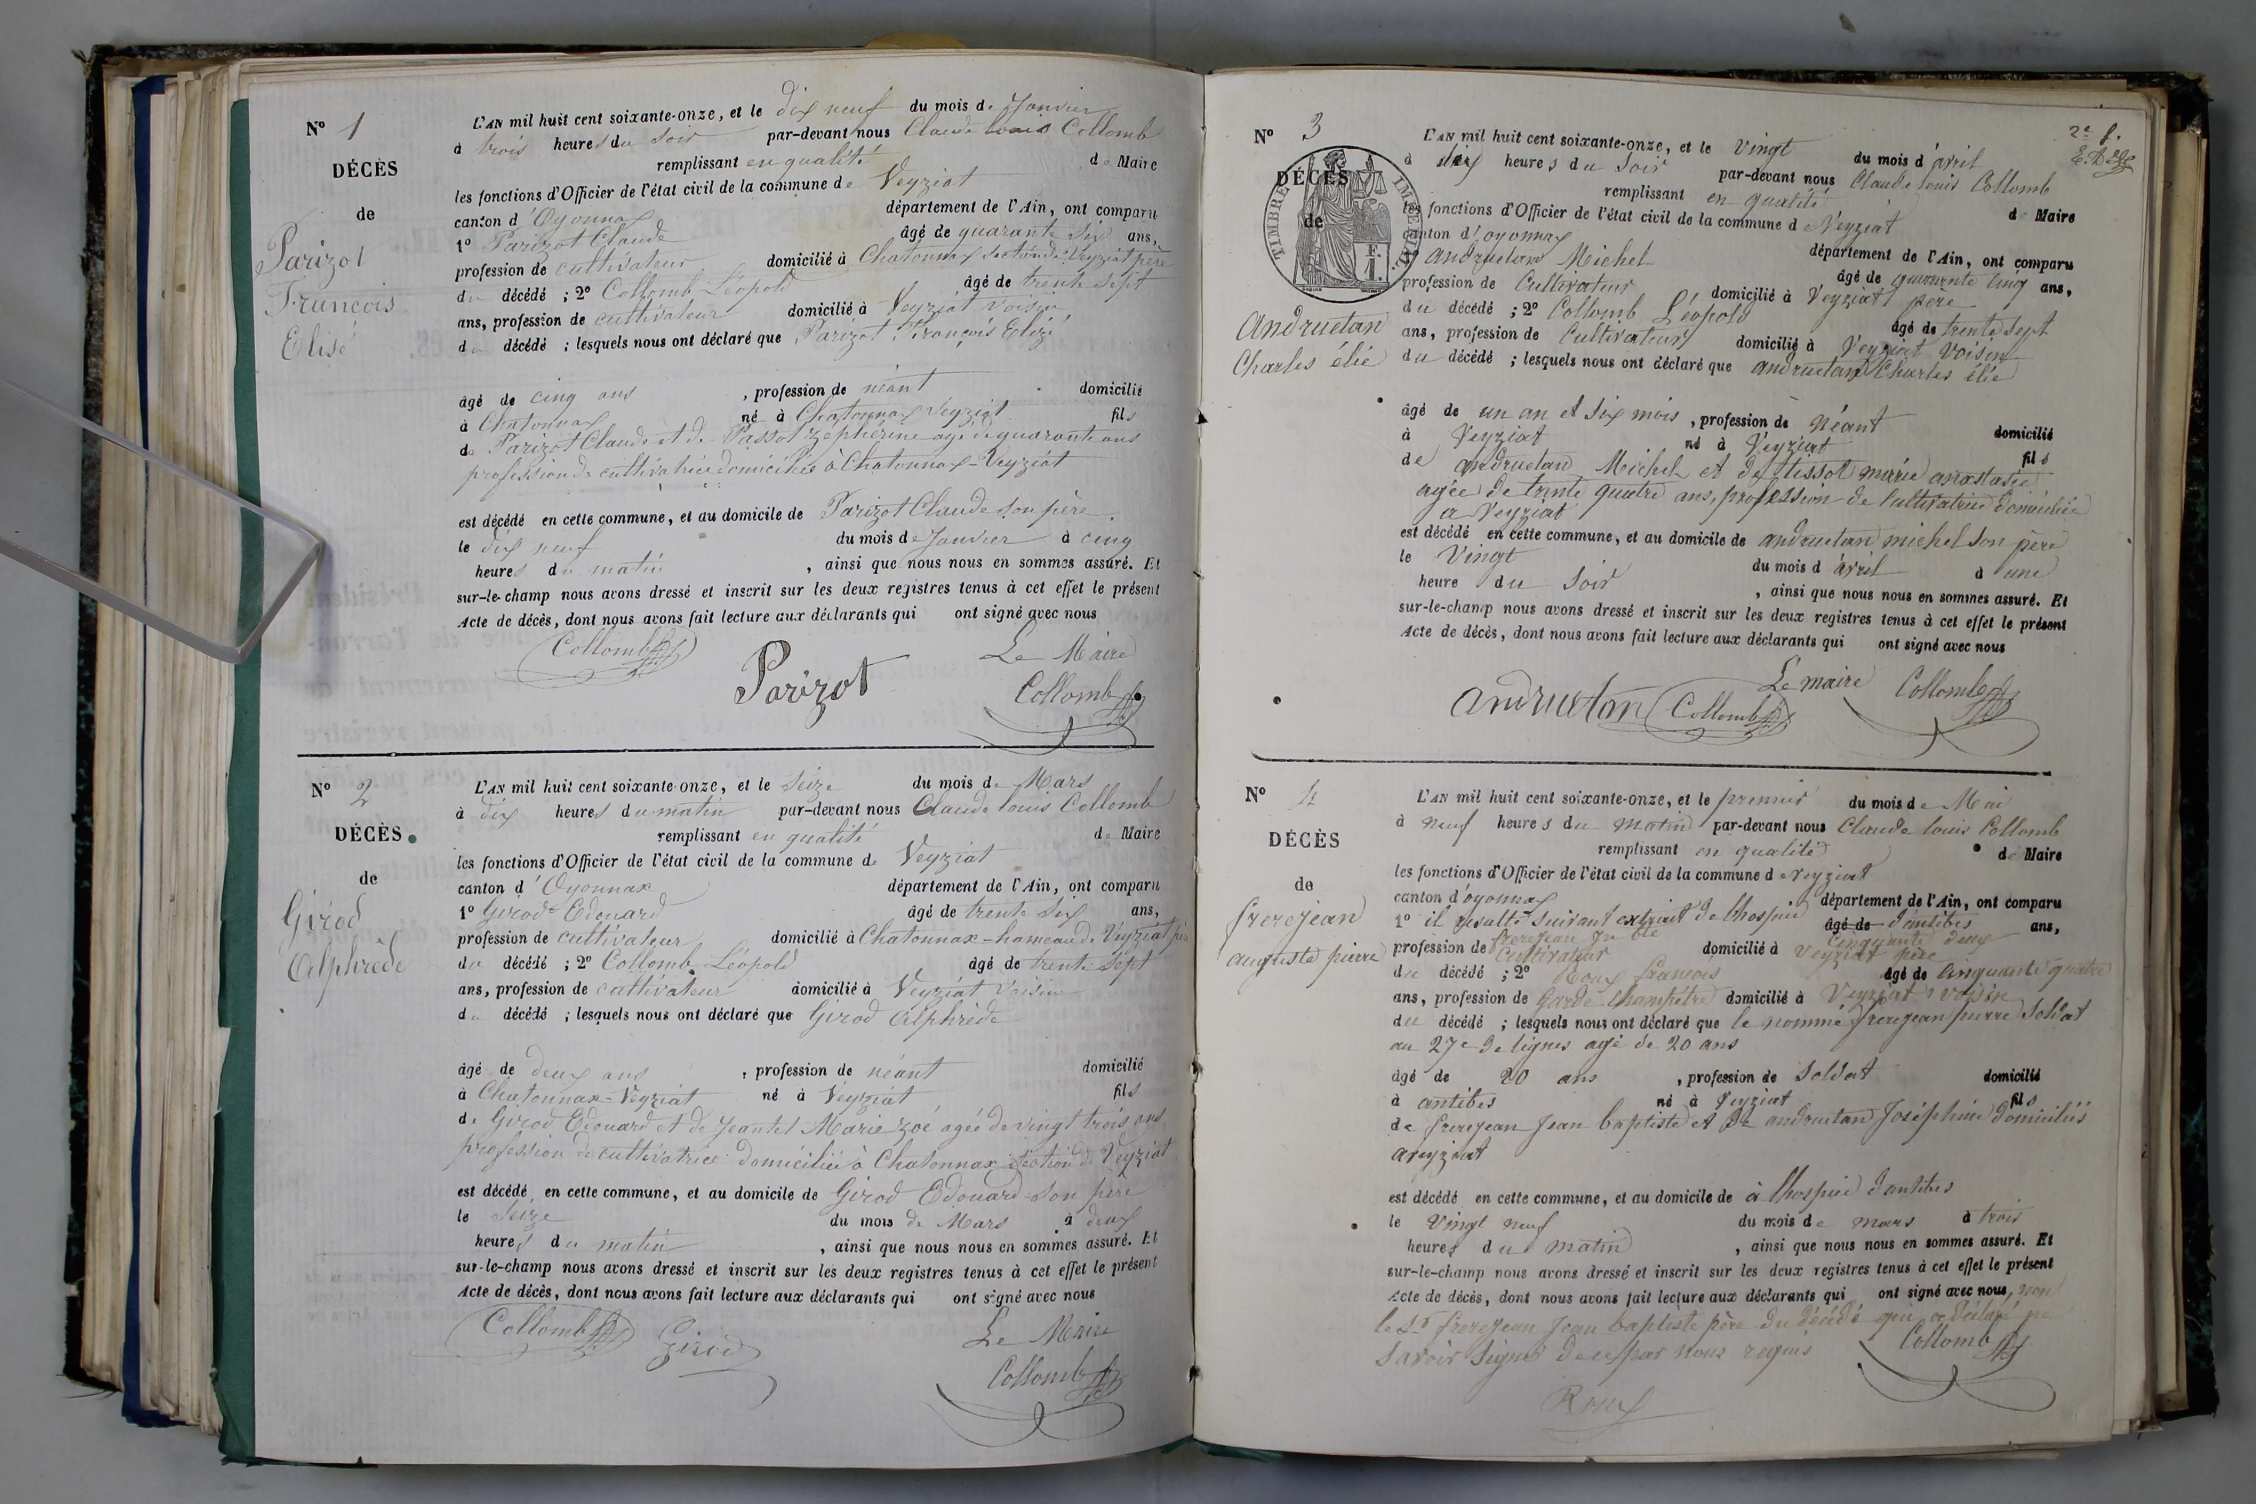 N° 1
DÉCÈS
de
Parizot
François
Elisé
L'AN mil huit cent soixante-onze, et le dix neuf du mois de Janvier
à trois heures du soir par-devant nous Claude Louis Collomb
remplissant en qualité de Maire
les fonctions d'Officier de l'état civil de la commune de Veyziat
canton d'Oyonnax département de l'Ain, ont comparu
1° Parizot Claude âgé de quarante six ans,
profession de cultivateur domicilié à Chatonnax section de Veyziat père
du décédé ; 2° Collomb Léopold âgé de trente sept
ans, profession de cultivateur domicilié à Veyziat voisin
du décédé ; lesquels nous ont déclaré que Parizot François Elizé
âgé de cinq ans , profession de néant domicilié
à Chatonnax né à Chatonnax Veyziat fils
de Parizot Claude et de Passot Zephérine agé de quarante ans
profession de cultivatrice domiciliés à Chatonnax-Veyziat
est décédé en cette commune, et au domicile de Parizot Claude son père.
le dix neuf du mois de Janvier à cinq
heures du matin , ainsi que nous nous en sommes assuré. Et
sur-le-champ nous avons dressé et inscrit sur les deux registres tenus à cet effet le présent
Acte de décès, dont nous avons fait lecture aux déclarants qui ont signé avec nous
Collomb Le Maire
Parizot Collomb
N° 2
DÉCÈS
de
Girod
Alphrède
L'AN mil huit cent soixante-onze, et le seize du mois de Mars
à dix heures du matin par-devant nous Claude Louis Collomb
remplissant en qualité de Maire
les fonctions d'Officier de l'état civil de la commune de Veyziat
canton d'Oyonnax département de l'Ain, ont comparu
1° Girod Edouard âgé de trente six ans,
profession de cultivateur domicilié à Chatonnax-hameau de Veyziat père
du décédé ; 2° Collomb Léopold âgé de trente sept
ans, profession de cultivateur domicilié à Veyziat voisin
du décédé ; lesquels nous ont déclaré que Girod Alphrède
âgé de deux ans , profession de néant domicilié
à Chatonnax-Veyziat né à Veyziat fils
de Girod Edouard et de Jeantet Marie Zoé agée de vingt trois ans
profession de cultivatrice domiciliée à Chatonnax section de Veyziat
est décédé en cette commune, et au domicile de Girod Edouard son père
le seize du mois de Mars à deux
heures du matin , ainsi que nous nous en sommes assuré. Et
sur-le-champ nous avons dressé et inscrit sur les deux registres tenus à cet effet le présent
Acte de décès, dont nous avons fait lecture aux déclarants qui ont signé avec nous
Collomb Girod Le Maire
Collomb
2e f.
N° 3
DÉCÈS
de
TIMBRE IMPÉRIAL
F.
1.
andruetan
Charles élie
L'AN mil huit cent soixante-onze, et le vingt du mois d'avril
à six heures du soir par-devant nous Claude louis Collomb
remplissant en qualité de Maire
les fonctions d'Officier de l'état civil de la commune de Veyziat
canton d'oyonnax département de l'Ain, ont comparu
andruetan Michel âgé de quarante cinq ans,
profession de Cultivateur domicilié à Veyziat père
du décédé ; 2° Collomb Léopold âgé de trente sept
ans, profession de Cultivateur domicilié à Veyziat voisin
du décédé ; lesquels nous ont déclaré que andruetan Charles élie
âgé de un an et six mois , profession de Néant domicilié
à Veyziat né à Veyziat fils
de andruetan Michel et de tissot marie anastasie
agée de trente quatre ans, profession de Cultivatrice domiciliée
a Veyziat
est décédé en cette commune, et au domicile de andruetan michel son père
le Vingt du mois d'avril à une
heure du soir , ainsi que nous nous en sommes assuré. Et
sur-le-champ nous avons dressé et inscrit sur les deux registres tenus à cet effet le présent
Acte de décès, dont nous avons fait lecture aux déclarants qui ont signé avec nous
Le maire Collomb
andruetan Collomb
N° 4
DÉCÈS
de
frerejean
auguste pierre
L'AN mil huit cent soixante-onze, et le premier du mois de Mai
à neuf heures du matin par-devant nous Claude louis Collomb
remplissant en qualité de Maire
les fonctions d'Officier de l'état civil de la commune de Veyziat
canton d'oyonnax département de l'Ain, ont comparu
1° il resulte suivant extrait de l'hospice âgé de d'antibes ans,
frerejean Jn bte cinquante deux
profession de Cultivateur domicilié à Veyziat père
du décédé ; 2° Roux francois âgé de cinquante quatre
ans, profession de Garde champêtre domicilié à Veyziat voisin
du décédé ; lesquels nous ont déclaré que le nommé frerejean pierre soldat
au 27e de lignes agé de 20 ans
âgé de 20 ans , profession de soldat domicilié
à antibes né à Veyziat fils
de frerejean Jean baptiste et de andruetan Joséphine domiciliés
a veyziat
est décédé en cette commune, et au domicile de à lhospice d'antibes
le Vingt neuf du mois de mars à trois
heures du matin , ainsi que nous nous en sommes assuré. Et
sur-le-champ nous avons dressé et inscrit sur les deux registres tenus à cet effet le présent
Acte de décès, dont nous avons fait lecture aux déclarants qui ont signé avec nous, non
le Sr frerejean Jean baptiste père du décédé qui a déclaré ne
savoir signer de ce par nous requis Collomb
Roux